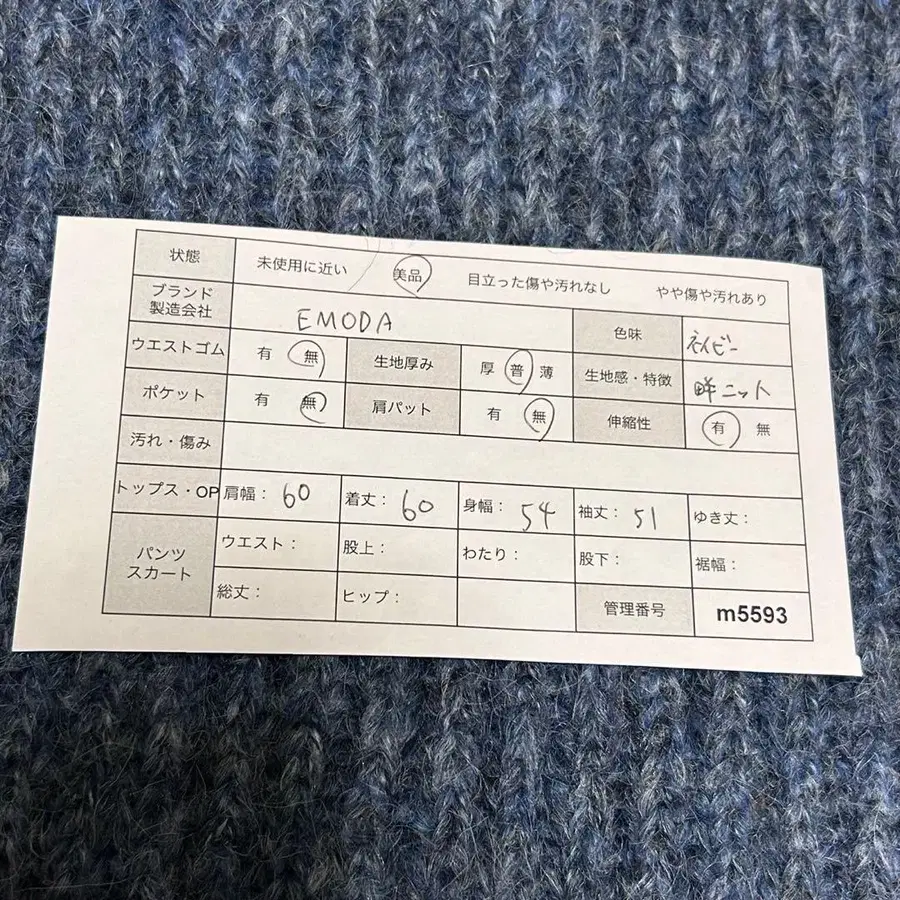 状態 未使用に近い 美品 目立った傷や汚れなし やや傷や汚れあり
ブランド 製造会社 EMODA 色味 ネイビー
ウエストゴム 有 無 生地厚み 厚 普 薄 生地感・特徴 畔ニット
ポケット 有 無 肩パット 有 無 伸縮性 有 無
汚れ・傷み
トップス・OP 肩幅: 60 着丈: 60 身幅: 54 袖丈: 51 ゆき丈:
パンツ スカート ウエスト: 股上: わたり: 股下: 裾幅:
総丈: ヒップ: 管理番号 m5593